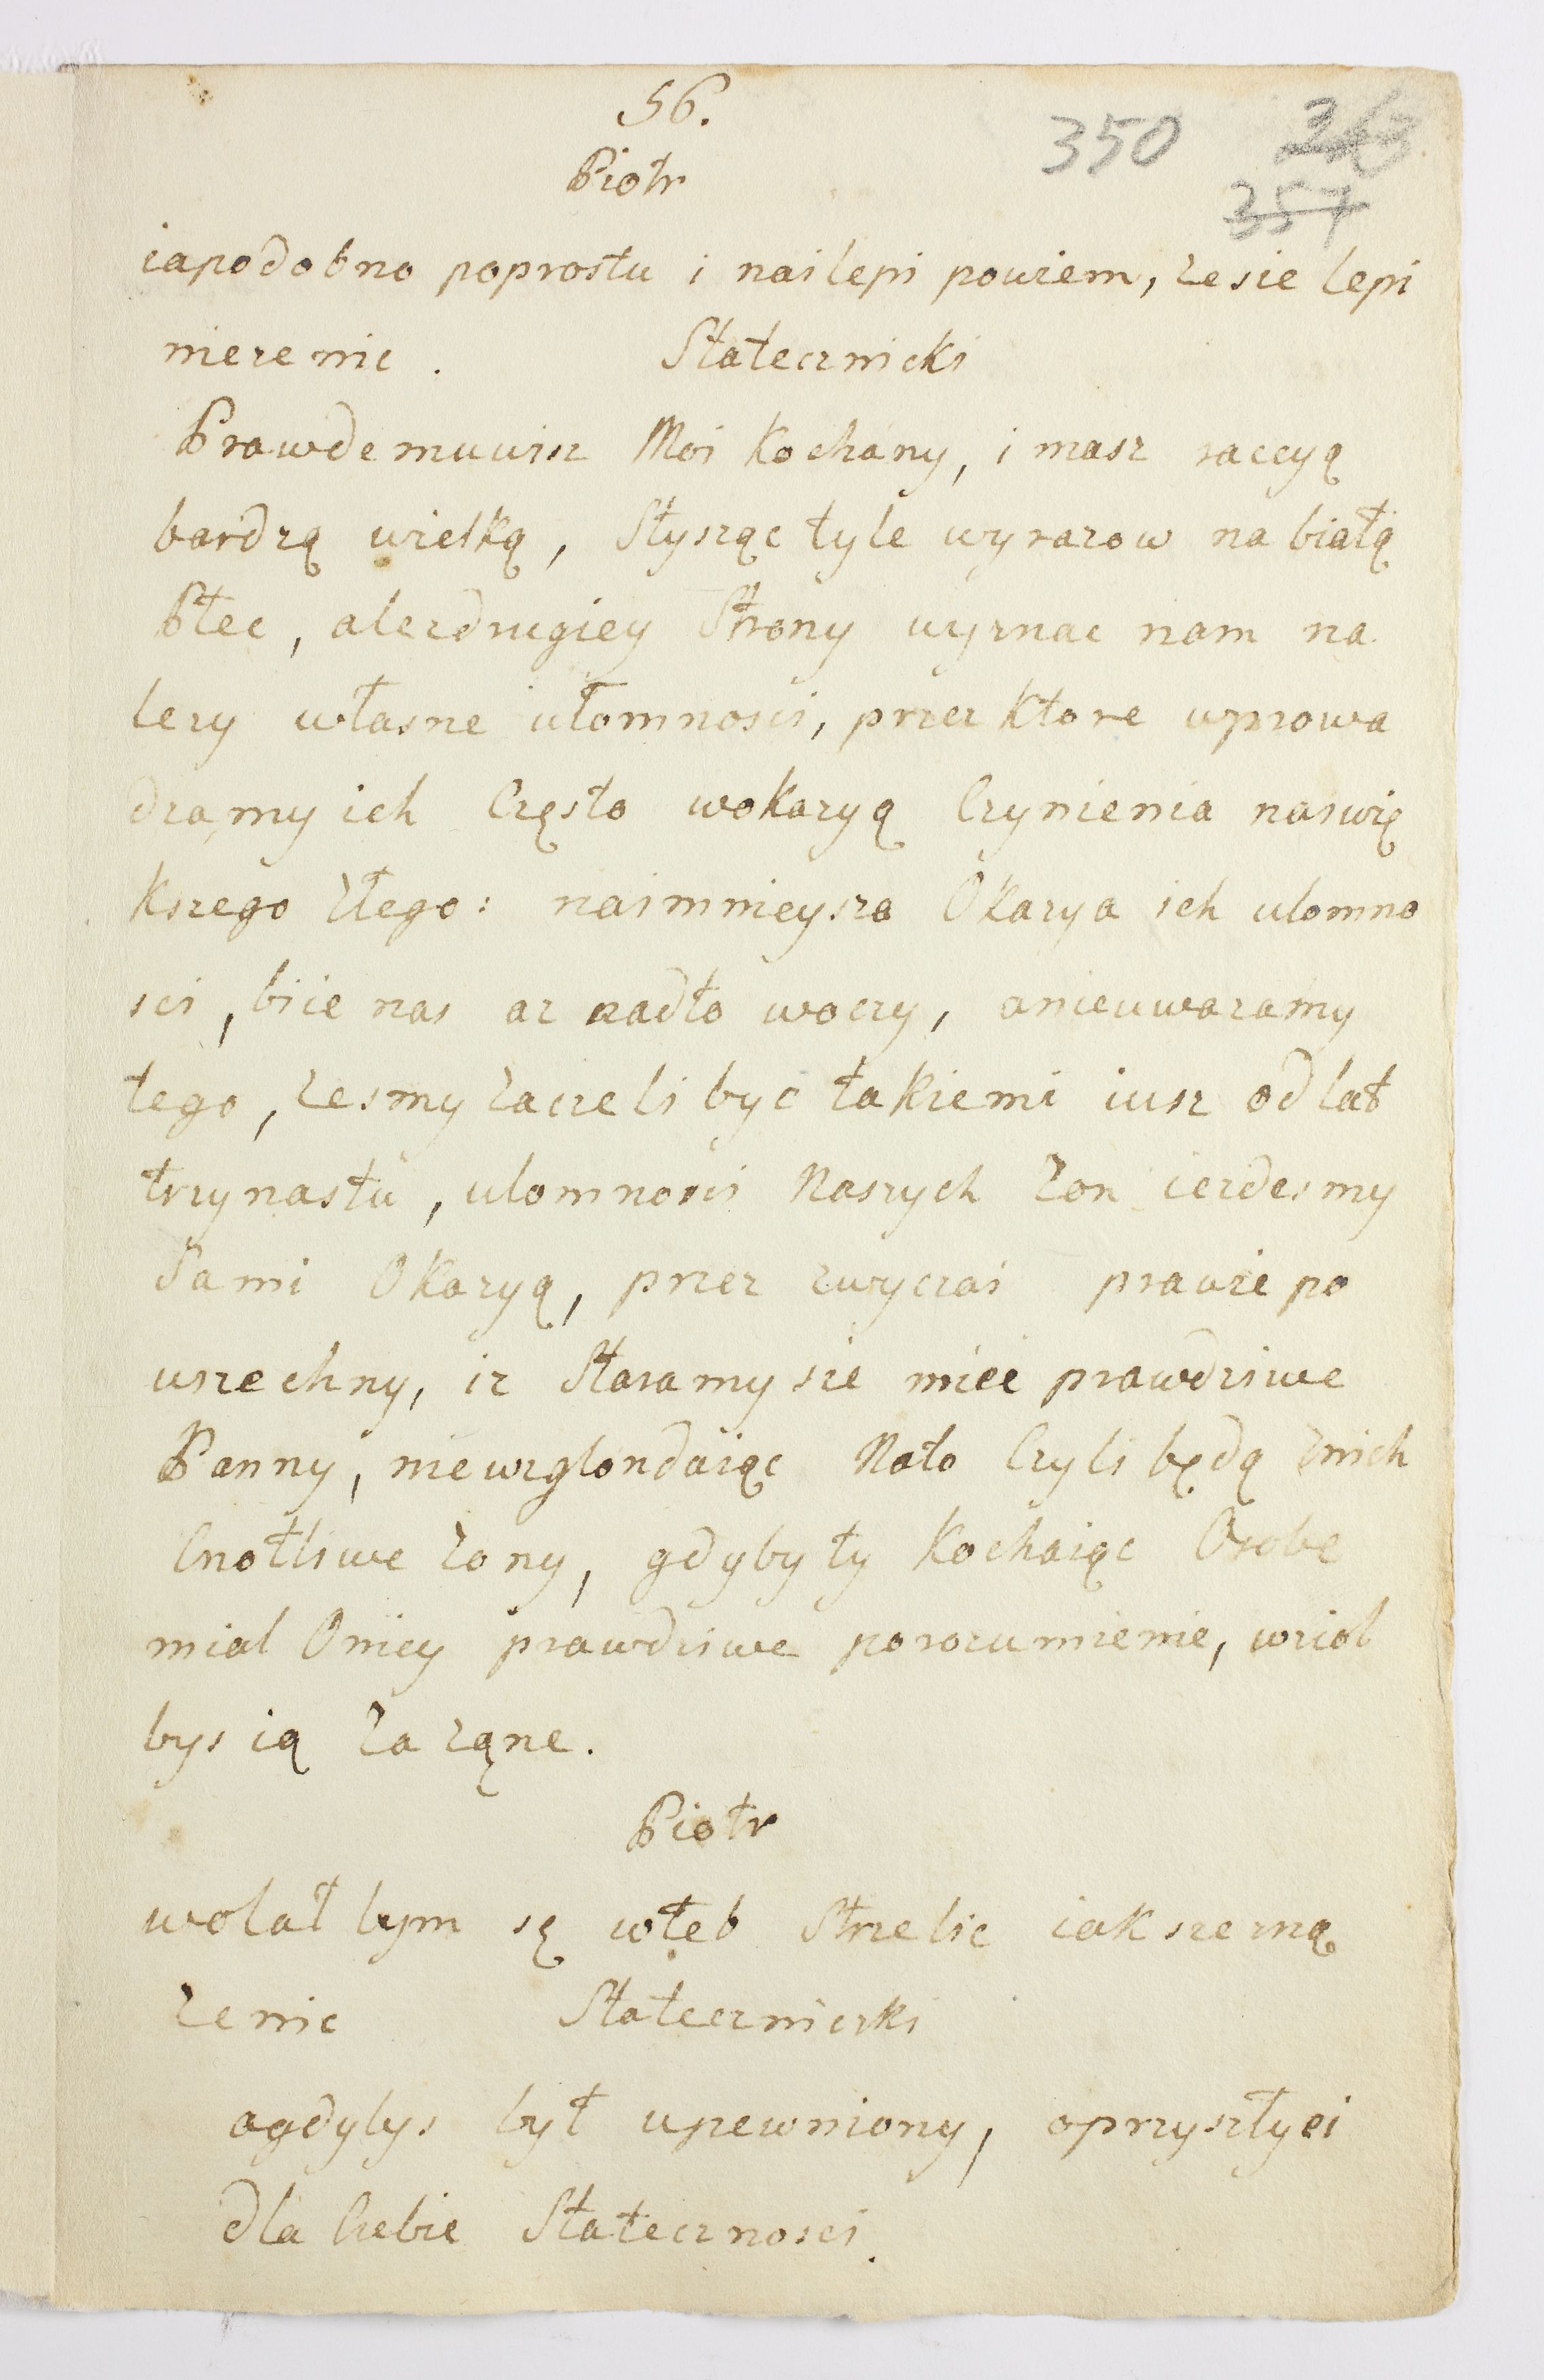 56.
350 263
357
Piotr
iapodobno poprostu i nailepi powiem, ze sie lepi
niezenic. Statecznicki
Prawde muwisz Moi Kochány, i masz raccyą
bardzą wielką, Słysząc tyle wyrazow na białą
Płec, alezdrugiey Strony wyznac nam na
lezy własne ułomnosci, przez Ktore wprowa
dzamy ich Często wokazyą Czynienia naiwię
Kszego złego: naimnieysza Okazya ich ulomno
sci, biie nas az nadto woczy, anieuwazamy
tego, zesmy zaczeli byc takiemi iusz od lat
trzynastu, ulomnosci Naszych zon iezdesmy
Sami Okazyą, przez zwyczai prawie po
wszechny, iz Staramy sie miec prawdziwe
Panny, niewzglondaiąc Nato Czyli będą znich
Cnotliwe zony, gdyby ty Kochaiąc Osobe
mial Oniey prawdziwe porozumienie, wziol
bys ią za ząne.
Piotr
wolał bym są włeb Strzelic iak sze zną
zenic Statecznicki
agdybys był upewniony, oprzyszłyei
dla Ciebie Statecznosci.